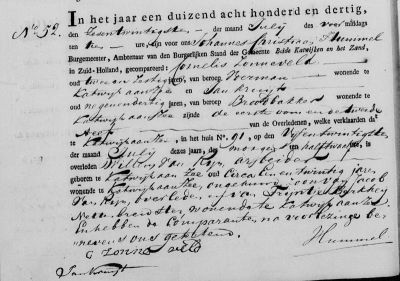 No. 52.
In het jaar een duizend acht honderd en dertig,
den Zesentwintigste der maand July des voormiddags
ten ure, zijn voor ons Johannes Hummel
Burgemeester, Ambtenaar van den Burgerlijken Stand der Gemeente Beide Katwijken en het Zand,
in Zuid-Holland, gecompareerd Cornelis Zonneveld
oud twee en zestig jaren, van beroep wonende te
Katwijk aan Zee en Jan Kruyt
oud negenendertig jaren, van beroep Broodbakker wonende te
Katwijk aan Zee zijnde de eerste oom en de tweede
Neef van de Overledenen, welke verklaarden dat
te Katwijk aan Zee, in het huis No. 91, op den Vijfentwintigste
der maand July dezes jaars, des morgens ten half twaalf ure, is
overleden Willem Van Rijn, arbeider
geboren te Katwijk aan Zee oud Circa Een en twintig jaren,
wonende te Katwijk aan Zee, ongehuwd, zoon van Jacob
Van Rijn, overleden, en van
wonende te Katwijk aan Zee
En hebben de Comparanten, na voorlezinge be-
nevens ons getekend.
C Zonneveld
Hummel
Jan Kruyt